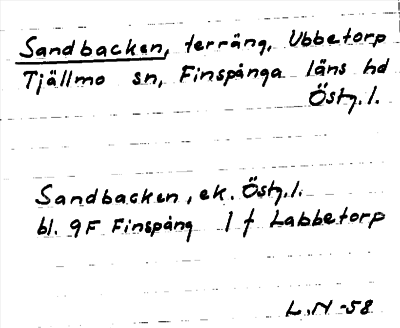 Sandbacken, terräng, Ubbetorp
Tjällmo sn, Finspånga läns hd
Östg. l.
Sandbacken, ek. Östg. l.
bl. 9F Finspång 1 f Labbetorp
L.N -58